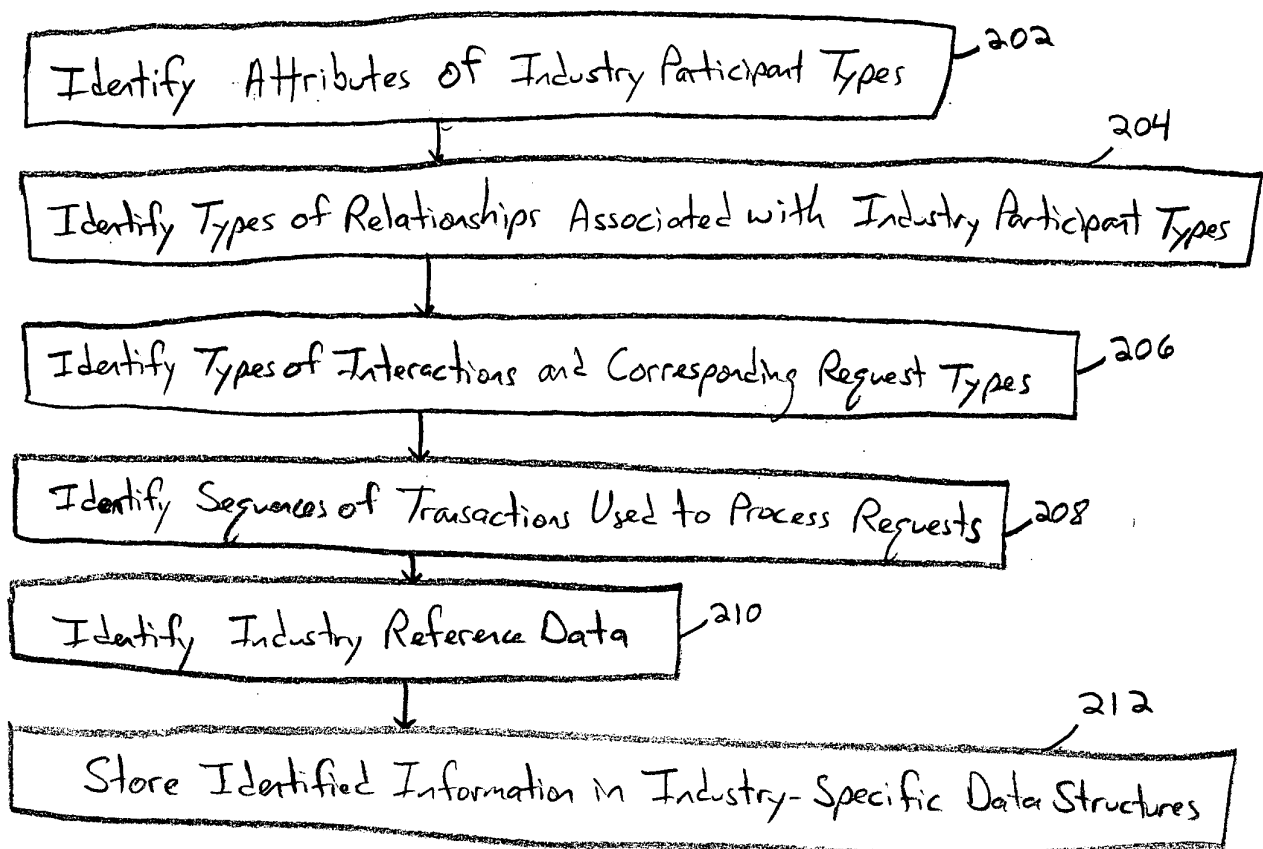 Identify Attributes of Industry Participant Types
202
204
Identify Types of Relationships Associated with Industry Participant Types
Identify Types of Interactions and Corresponding Request Types
206
Identify Sequences of Transactions Used to Process Requests
208
Identify Industry Reference Data
210
212
Store Identified Information in Industry-Specific Data Structures